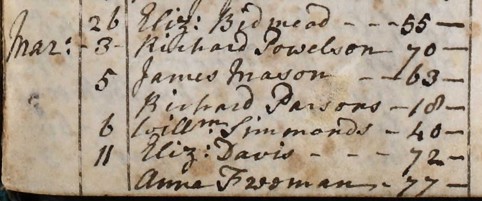 26 Eliz: Bidmead - - - 55 -
Mar: - 3 - Richard Powelson 70 -
5 James Mason - - 63 -
Richard Parsons - 18 -
6 Willm Simmonds - 40 -
11 Eliz: Davis - - - 72 -
Anna Freeman - 77 -